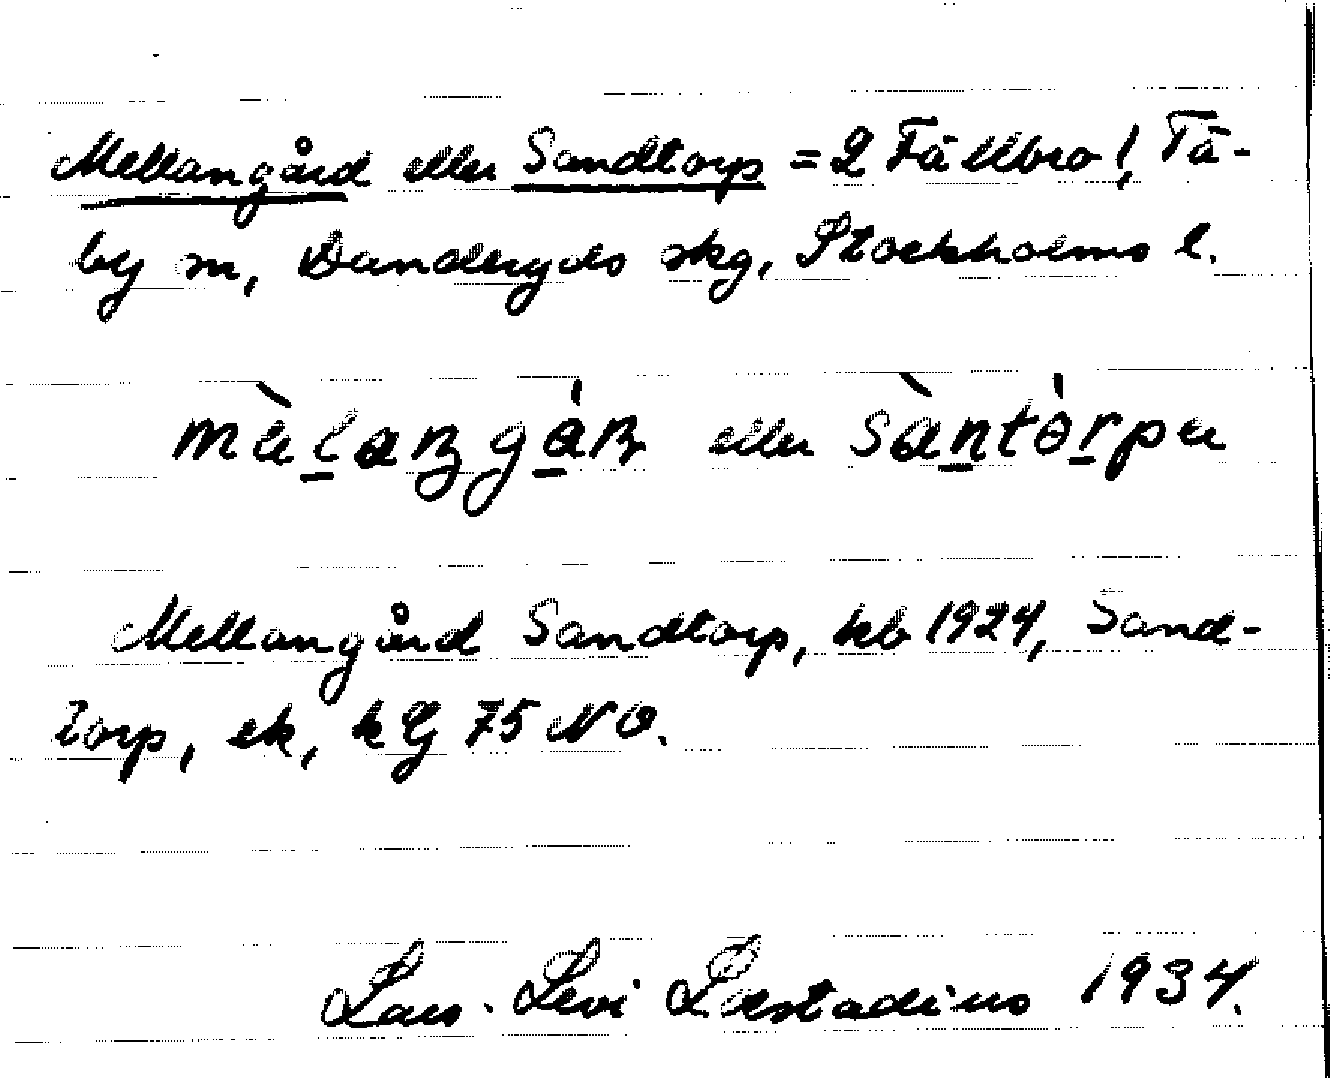 Mellangård eller Sandtorp = 2 Fällbro!, Tä-
by sn, Danderyds skg, Stockholms l.
eller
Mellangård Sandtorp, kb 1924, Sand-
torp, ek, k G 75 NO.
Lars-Levi Læstadius 1934.